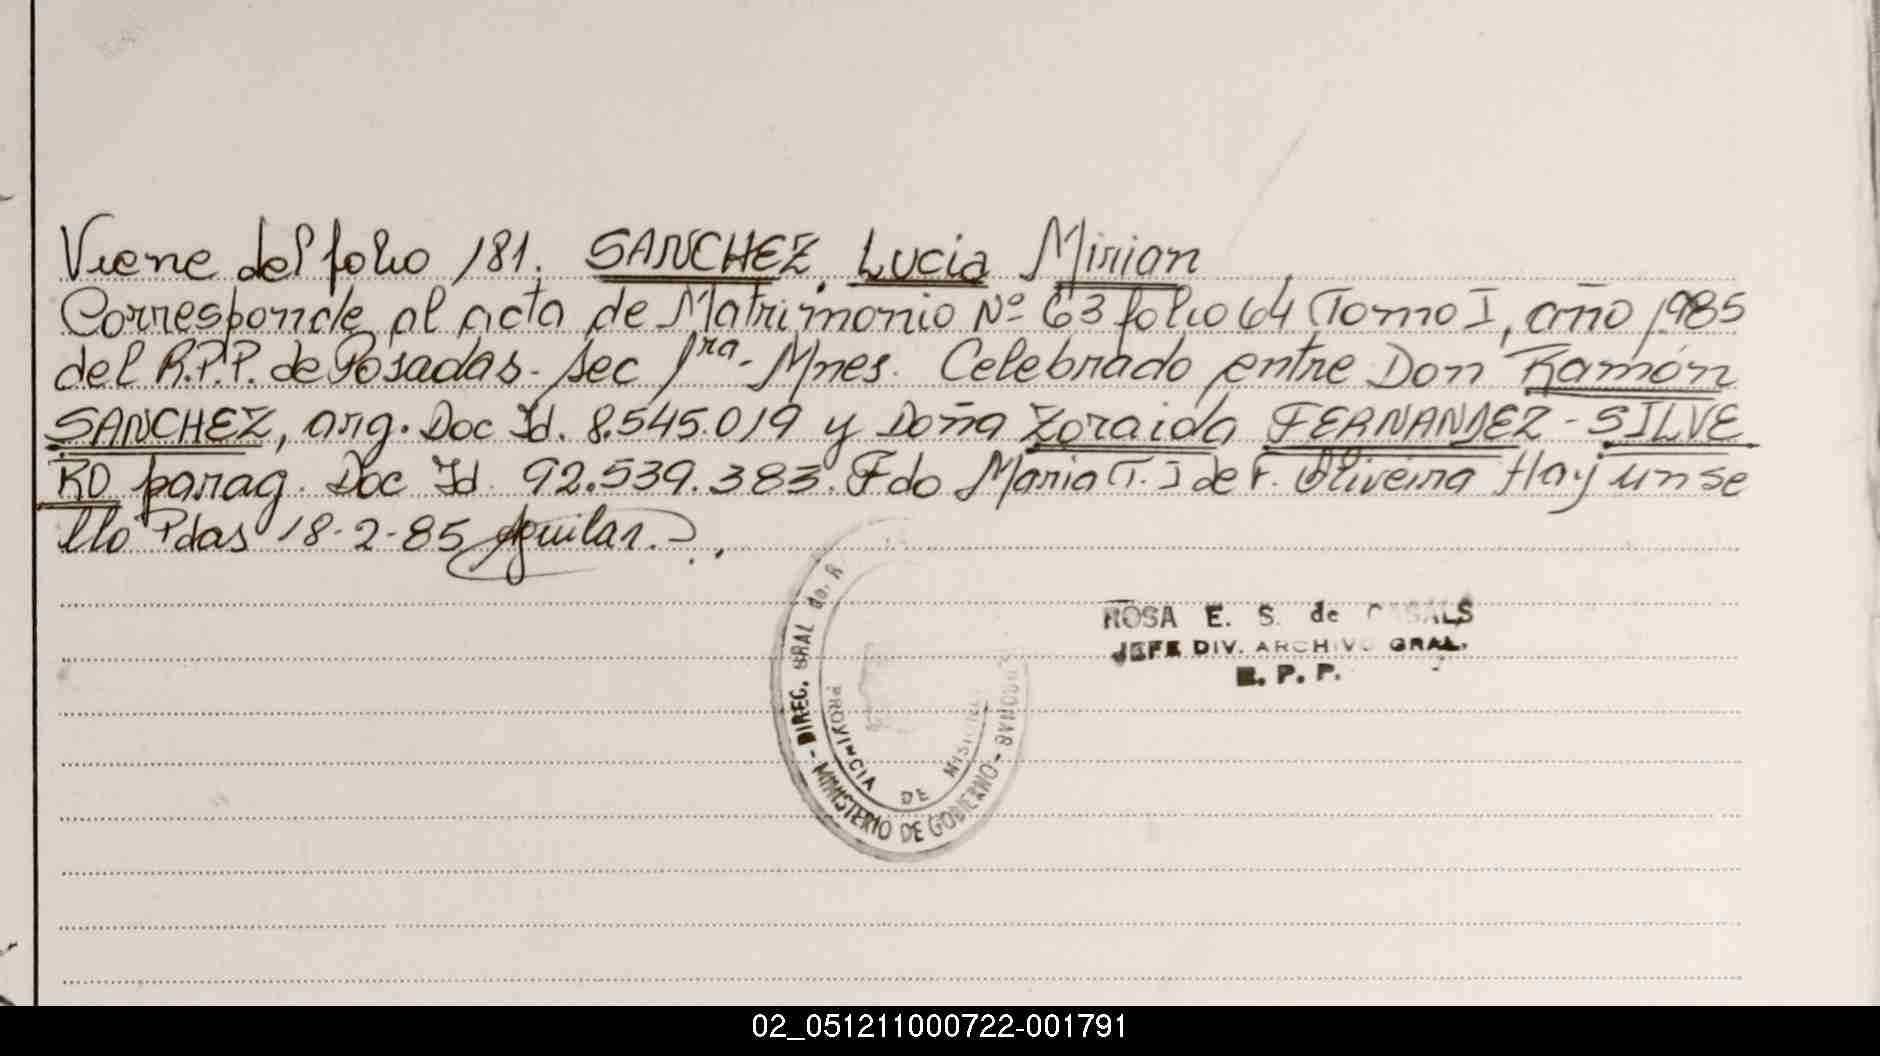 Viene del folio 181. SANCHEZ, Lucia Mirian
Corresponde al acta de Matrimonio Nº 63 folio 64 Tomo I, año 1985
del R.P.P. de Posadas - Sec 1ra - Mnes. Celebrado entre Don Ramón
SANCHEZ, arg. Doc Id. 8.545.019 y Doña Zoraida FERNANDEZ - SILVE
RO parag. Doc Id. 92.539.383. Fdo Maria T. I de F. Oliveira Hay un se
llo Pdas 18-2-85 Aguilar.
ROSA E. S. de CASALS
JEFE DIV. ARCHIVO GRAL.
R. P. P.
DIREC. GRAL do. R
- MINISTERIO DE GOBIERNO -
PROVINCIA DE MISIONES
02_051211000722-001791